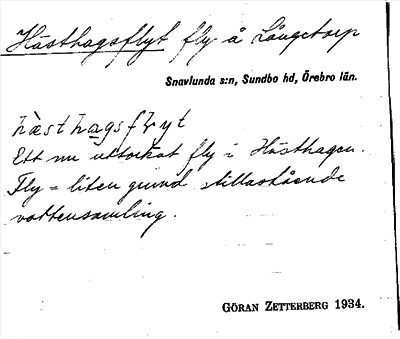 Hästhagsflyt fly å Långetorp
Snavlunda s:n, Sundbo hd, Örebro län.
hästhagsflyt
Ett nu uttorkat fly i Hästhagen.
Fly = liten grund stillastående
vattensamling.
GÖRAN ZETTERBERG 1934.